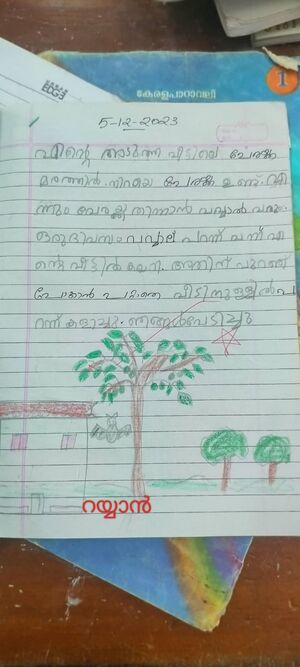 കേരളപാഠാവലി
1
5-12-2023
എന്റെ അടുത്ത വീട്ടിലെ പേരക്ക
മരത്തിൽ നിറയെ പേരക്ക ഉണ്ട്. എ
ന്നും പേരക്ക തിന്നാൻ വവ്വാൽ വരും.
ഒരു ദിവസം വവ്വാല് പറന്ന് വന്ന് എ
ന്റെ വീട്ടിൽ കയറി. അതിന് പുറത്ത്
പോകാൻ പറ്റാതെ വീടിനുള്ളിൽ പ
റന്ന് കളിച്ചു. ഞങ്ങൾ പേടിച്ചു
റയ്യാൻ